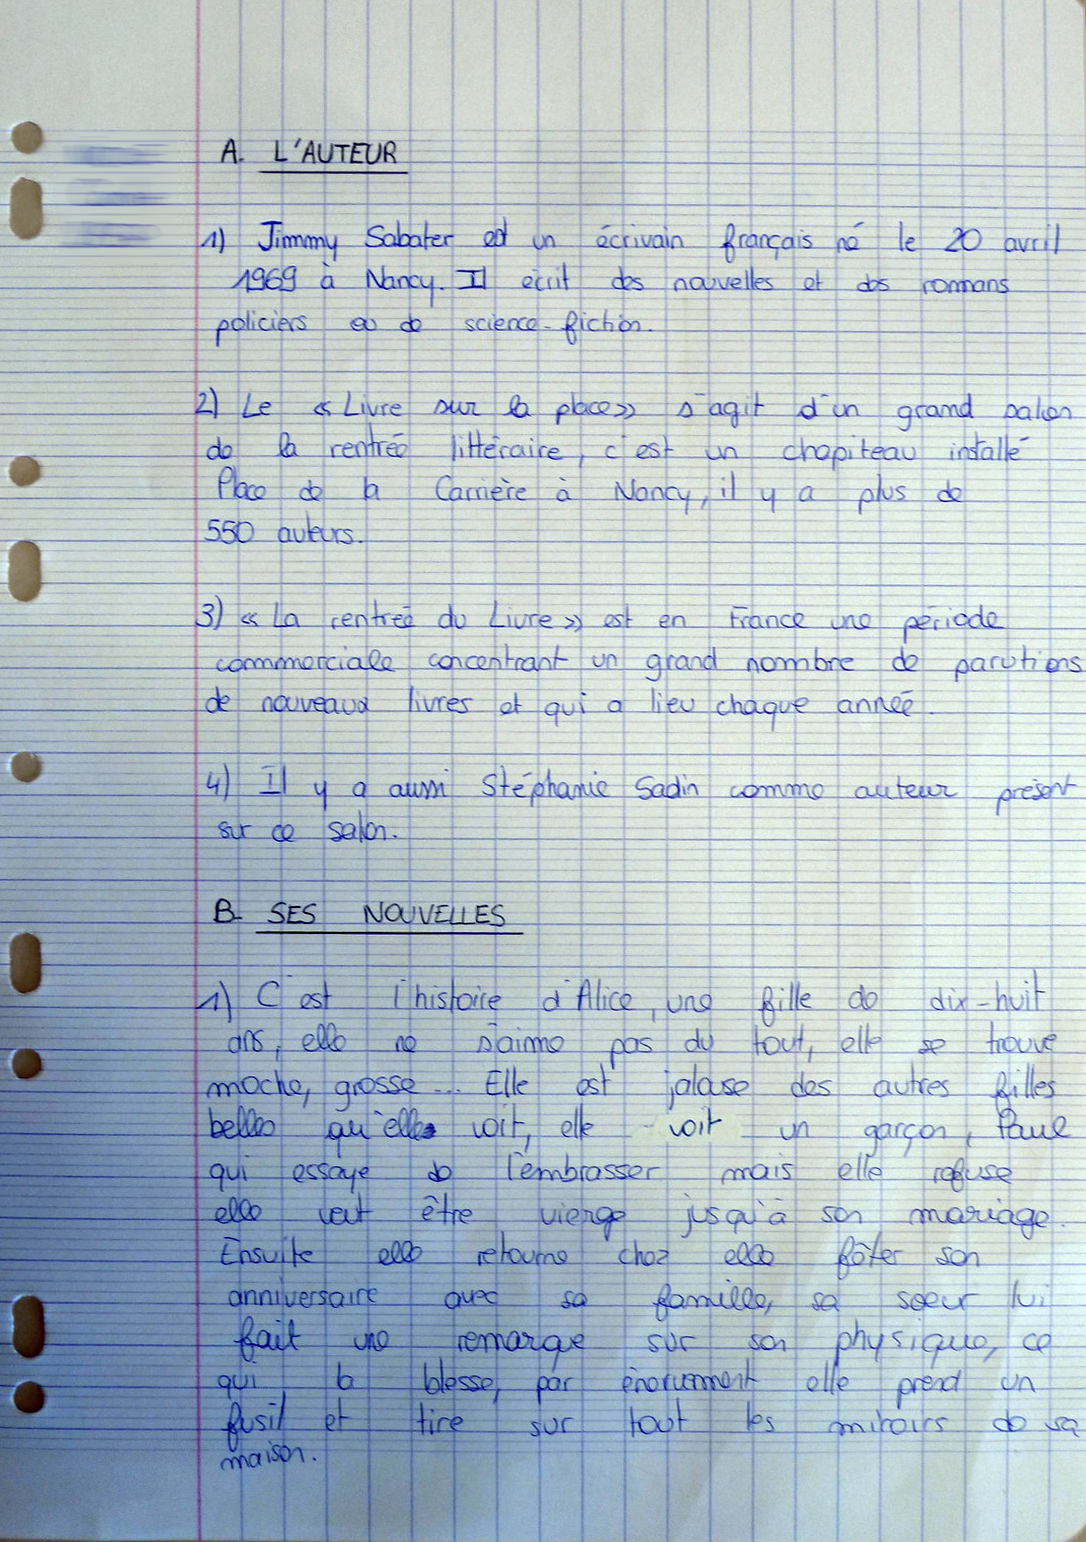 A. L'AUTEUR
1) Jimmy Sabater est un écrivain français né le 20 avril
1969 à Nancy. Il écrit des nouvelles et des romans
policiers ou de science-fiction.
2) Le « Livre sur la place » s'agit d'un grand salon
de la rentrée littéraire, c'est un chapiteau installé
Place de la Carrière à Nancy, il y a plus de
550 auteurs.
3) « La rentrée du Livre » est en France une période
commerciale concentrant un grand nombre de parutions
de nouveaux livres et qui a lieu chaque année.
4) Il y a aussi Stéphanie Sadin comme auteur présent
sur ce salon.
B. SES NOUVELLES
1) C'est l'histoire d'Alice, une fille de dix-huit
ans, elle ne s'aime pas du tout, elle se trouve
moche, grosse... Elle est jalouse des autres filles
belles qu'elle voit, elle voit un garçon, Paul
qui essaye de l'embrasser mais elle refuse
elle veut être vierge jusqu'à son mariage.
Ensuite elle retourne chez elle fêter son
anniversaire avec sa famille, sa soeur lui
fait une remarque sur son physique, ce
qui la blesse, par énervement elle prend un
fusil et tire sur tout les miroirs de sa
maison.